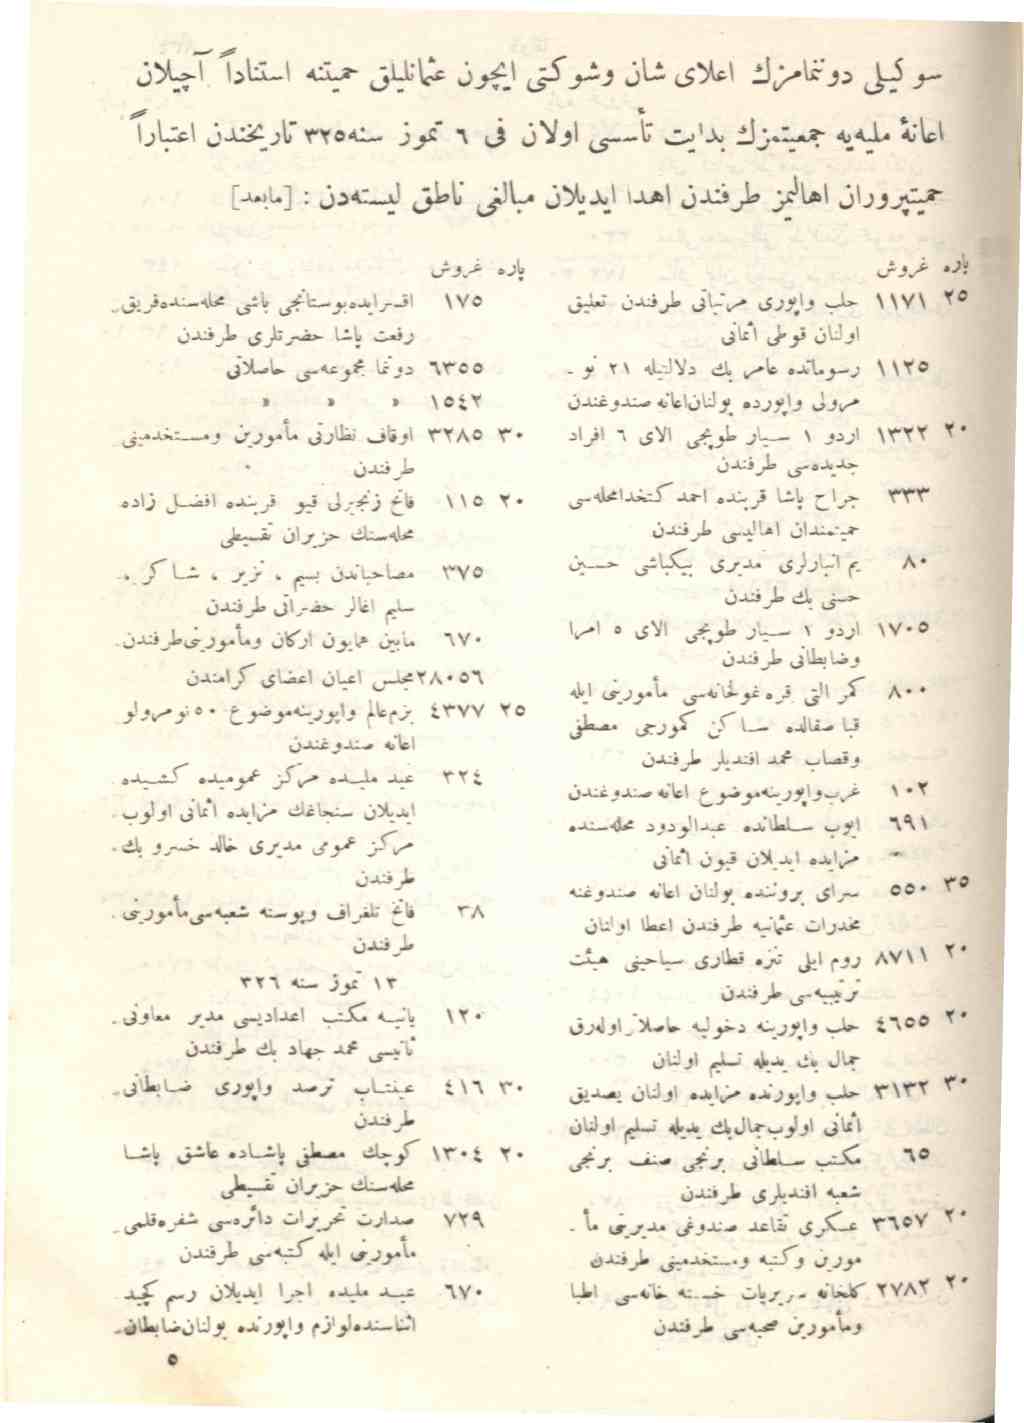 سوكیلی دوننمامزك اعلای شان وشوكتی ایچون عثمانلیلق حمیتنه استناداً آچیلان
اعانهٔ ملیه‌یه جمعیتمزك بدایت تأسسی اولان فی ٦ تموز سنه٣٢٥ تاریخندن اعتباراً
حمیتپروران اهالیمز طرفندن اهدا ایدیلان مبالغی ناطق لیسته‌دن : [مابعد]
پاره غروش
٢٥ ١١٧١ حلب واپوری مرتباتی طرفندن تعلیق
اولنان قوطی اثمانی
١١٢٥ رسوماتده عامر بك دلالتیله ٢١ نو -
مرولی واپورده بولنان‌اعانه صندوغندن
٢٠ ١٣٢٢ اردو ١ سیار طوپجی الای ٦ افراد
جدیده‌سی طرفندن
٣٣٣ جراح پاشا قربنده احمد كتخدامحله‌سی
حمیتمندان اهالیسی طرفندن
٨٠ یم انبارلری مدیری بیكباشی حسین
حسنی بك طرفندن
١٧٠٥ اردو ١ سیار طوپجی الای ٥ امرا
وضابطانی طرفندن
٨٠٠ كمر التی قره‌غولخانه‌سی مأمورینی ایله
قبا صقالده ساكن كمورجی مصطفی
وقصاب محمد افندیلر طرفندن
١٠٢ غرب‌واپورینه‌موضوع اعانه صندوغندن
٦٩١ ایوب سلطانده عبدالودود محله‌سنده
مزایده ایدیلان قیون اثمانی
٣٥ ٥٥٠ سرای بروننده بولنان اعانه صندوغنه
مخدرات عثمانیه طرفندن اعطا اولنان
٢٠ ٨٧١١ روم ایلی تنزه قطاری سیاحینی هیئت
ترتیبیه‌سی طرفندن
٢٠ ٤٦٥٥ حلب واپورینه دخولیه حاصلاتی اوله‌رق
جمال بك یدیله تسلیم اولنان
٣٠ ٣١٣٢ حلب واپورنده مزایده اولنان یصدیق
اثمانی اولوب‌جمال‌بك یدیله تسلیم اولنان
٦٥ مكتب سلطانی برنجی صنف برنجی
شعبه افندیلری طرفندن
٢٠ ٣٦٥٧ عسكری تقاعد صندوغی مدیریتی مأ -
مورین وكتبه ومستخدمینی طرفندن
٢٠ ٢٧٨٢ كلخانه سریریات خسته خانه‌سی اطبا
ومأمورین صحیه‌سی طرفندن
پاره غروش
١٧٥ اقسرایده‌بوستانجی باشی محله‌سنده‌فریق
رفعت پاشا حضرتلری طرفندن
٦٣٥٥ دوننما مجموعه‌سی حاصلاتی
١٥٤٢ » » »
٣٠ ٣٢٨٥ اوقاف نظارتی مأمورین ومستخدمینی
طرفندن
٢٠ ١١٥ فاتح زنجیرلی قیو قربنده افضل زاده
محله‌سنك حزیران تقسیطی
٣٧٥ مصاحباندن بسیم ، نزیر ، شاكر ،
سلیم اغالر حضراتی طرفندن
٦٧٠ مابین همایون اركان ومأمورینی‌طرفندن
٢٨٠٥٦ مجلس اعیان اعضای كرامندن
٢٥ ٤٣٧٧ بزم‌عالم واپورینه‌موضوع ٥٠نومرولو
اعانه صندوغندن
٣٢٤ عید ملیده مركز عمومیده كشیده
ایدیلان سنجاغك مزایده اثمانی اولوب
مركز عمومی مدیری خالد خسرو بك
طرفندن
٣٨ فاتح تلغراف وپوسته شعبه‌سی‌مأمورینی
طرفندن
١٣ تموز سنه ٣٢٦
١٢٠ یانیه مكتب اعدادیسی مدیر معاونی
ثانیسی محمد جهاد بك طرفندن
٣٠ ٤١٦ عینتاب ترصد واپوری ضابطانی
طرفندن
٢٠ ١٣٠٤ كوچك مصطفی پاشاده عاشق پاشا
محله‌سنك حزیران تقسیطی
٧٢٩ صدارت تحریرات دائره‌سی شفره‌قلمی
مأمورینی ایله كتبه‌سی طرفندن
٦٧٠ عید ملیده اجرا ایدیلان رسم كچید
اثناسنده‌لوازم واپورنده بولنان‌ضابطان
٥